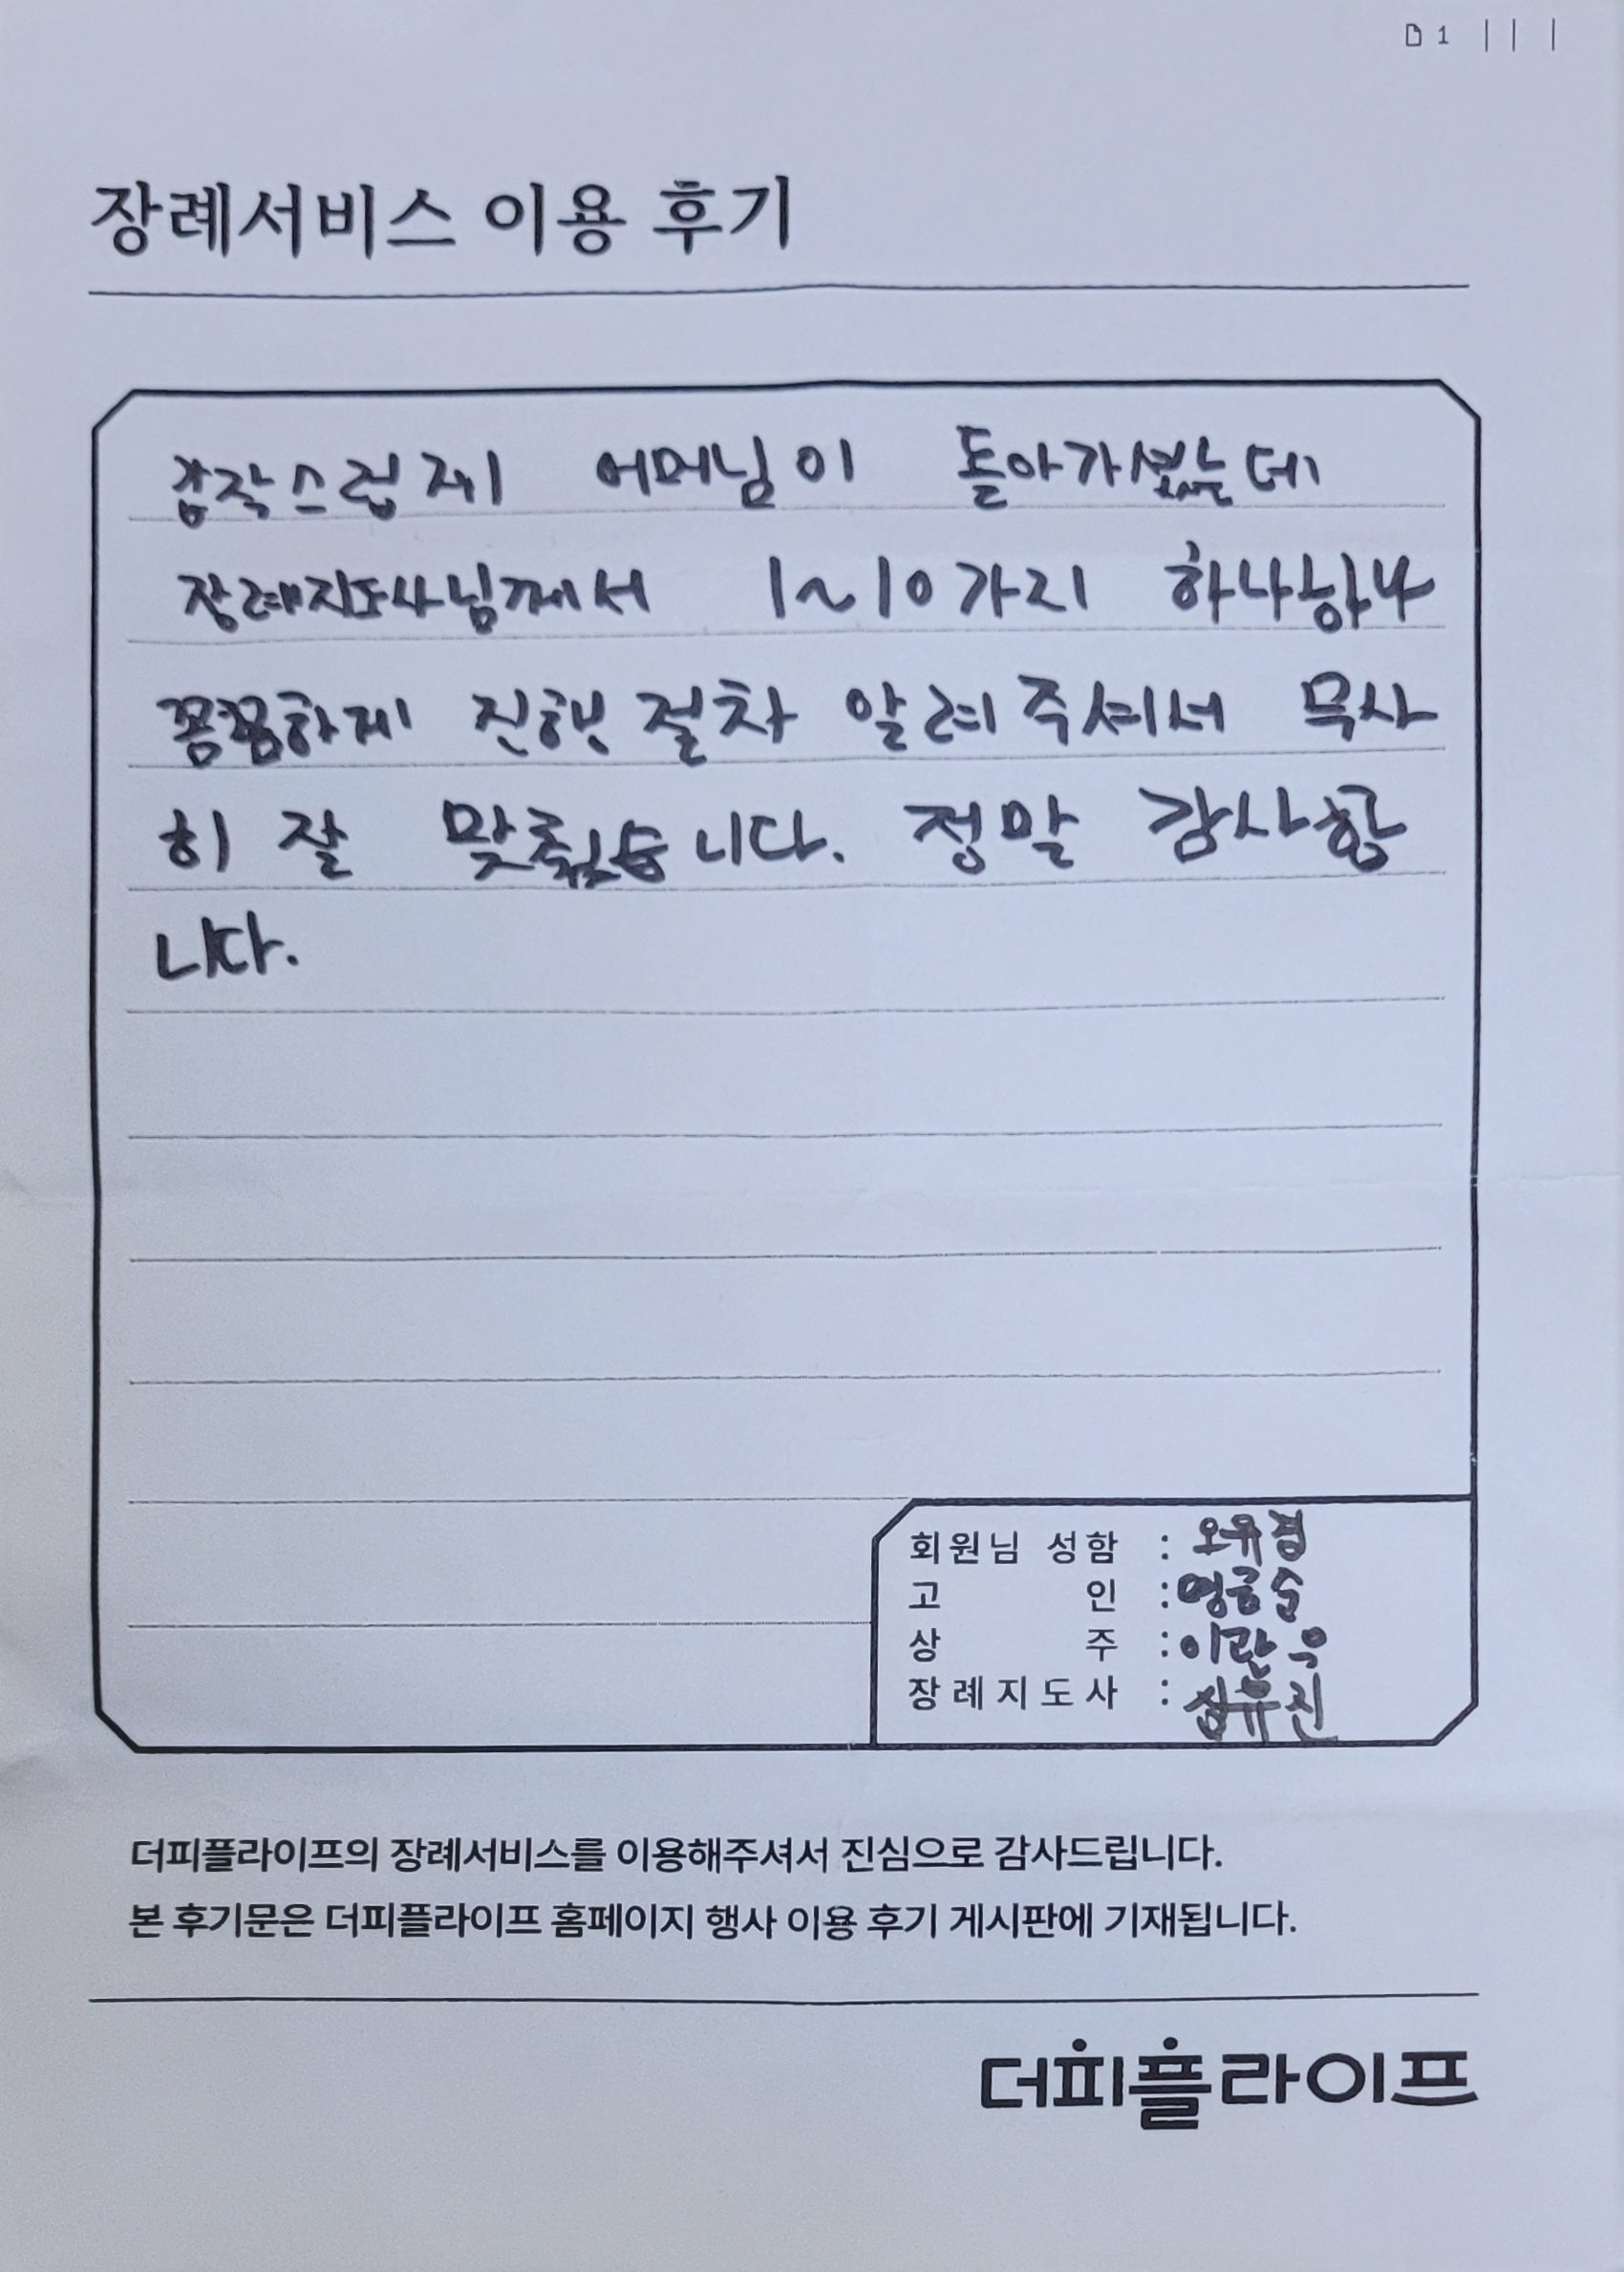 1
장례서비스 이용 후기
갑작스럽게 어머님이 돌아가셨는데
장례지도사님께서 1~10가지 하나하나
꼼꼼하게 진행절차 알려주셔서 무사
히 잘 맞췄습니다. 정말 감사합
니다.
회원님 성함 : 오유경
고 인 : 명금순
상 주 : 이관우
장례지도사 : 심유진
더피플라이프의 장례서비스를 이용해주셔서 진심으로 감사드립니다.
본 후기문은 더피플라이프 홈페이지 행사 이용 후기 게시판에 기재됩니다.
더피플라이프